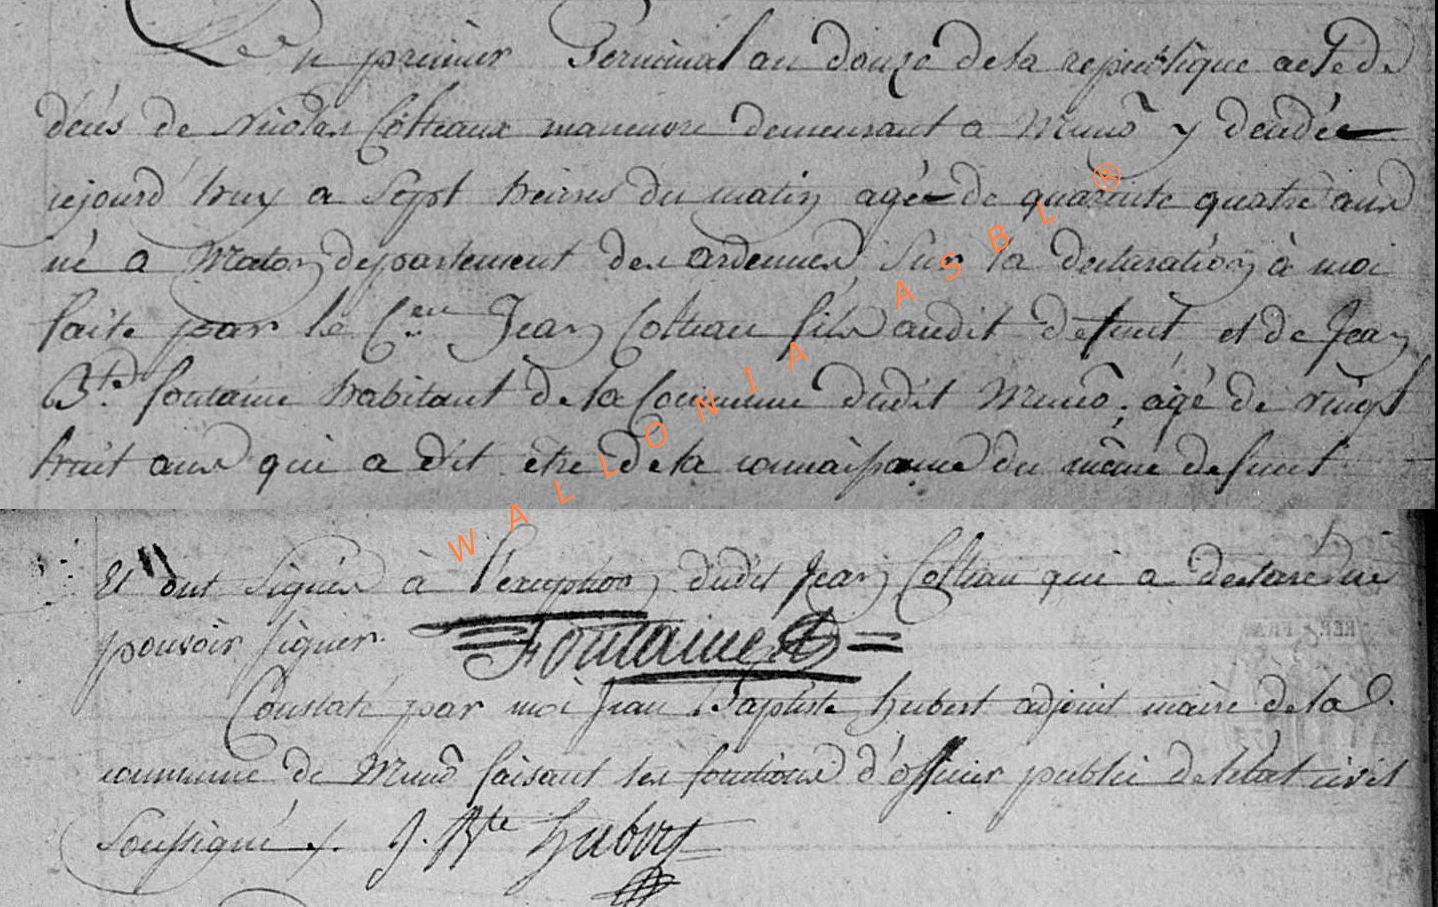 Le premier Germinal an douze de la republique acte de
décés de Nicolas Cotteaux maneuvre demeurant a Muno y decedée
cejourd'huy a Sept heures du matin agé de quarante quatre ans
né a Maton departement des ardennes Sur la declaration à moi
faite par le C.en Jean Cotteau fils audit defunt et de Jean
B.te fontaine habitant de la Commune dudit Muno, agé de vingt
huit ans qui a dit etre de la connaissance du même defunt
Et ont Signés à l'exception dudit Jean Cotteau qui a declaré ne
pouvoir signer. Fontaine
Constaté par moi Jean Baptiste hubert adjoint maire de la
commune de Muno faisant les fonctions d'officier public de l'etat civil
Soussigné J. Bte Hubert
WALLONIA ASBL ®